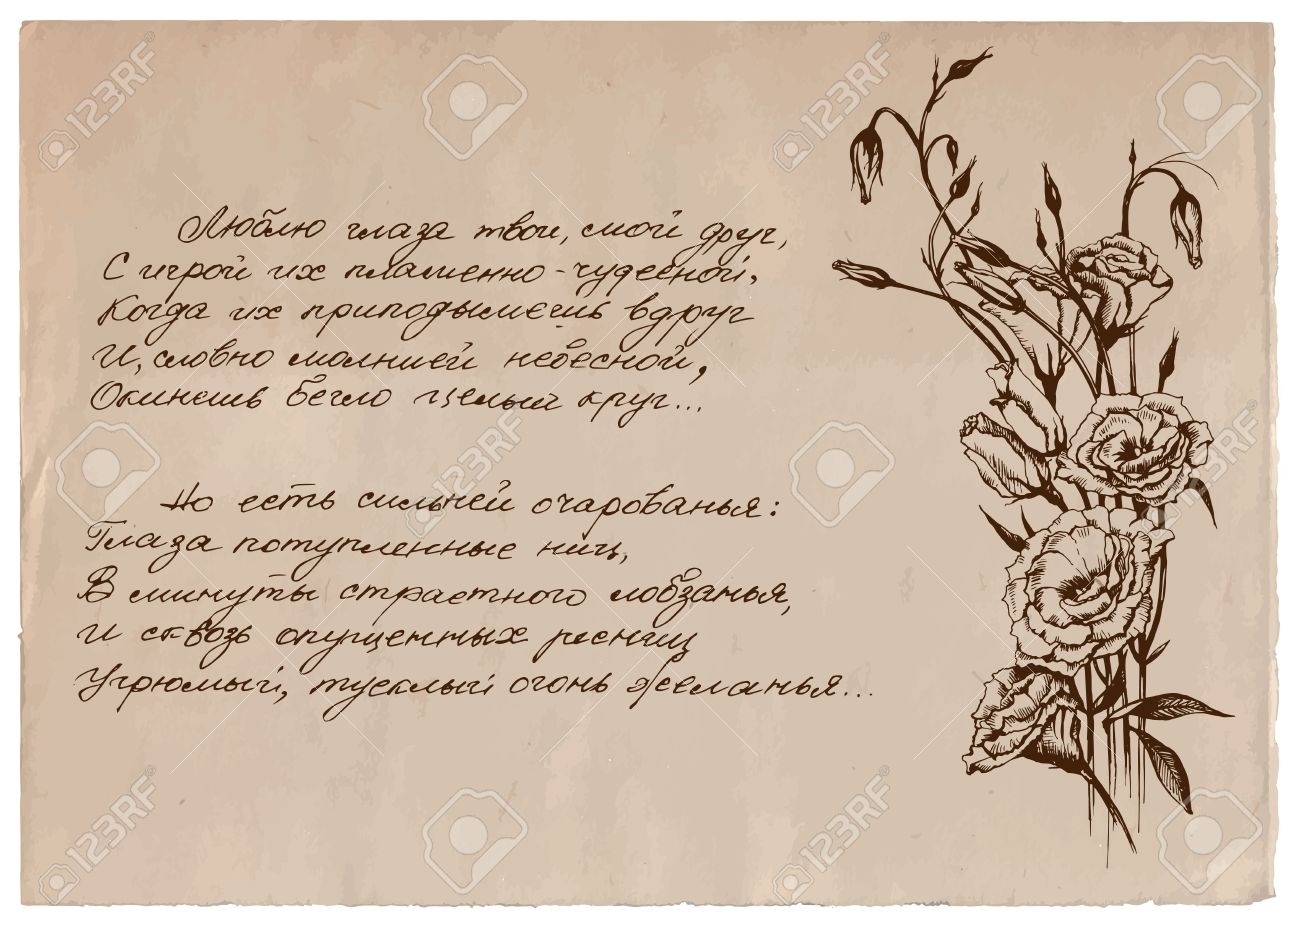 Люблю глаза твои, мой друг,
С игрой их пламенно-чудесной,
Когда их приподымешь вдруг
И, словно молнией небесной,
Окинешь бегло целый круг...
Но есть сильней очарованья:
Глаза потупленные ниц,
В минуты страстного лобзанья,
И сквозь опущенных ресниц
Угрюмый, тусклый огонь желанья...
123RF